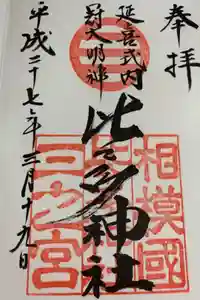 奉拝
延喜式内
冠大明神
比々多神社
平成二十七年三月十九日
相模國
三之宮